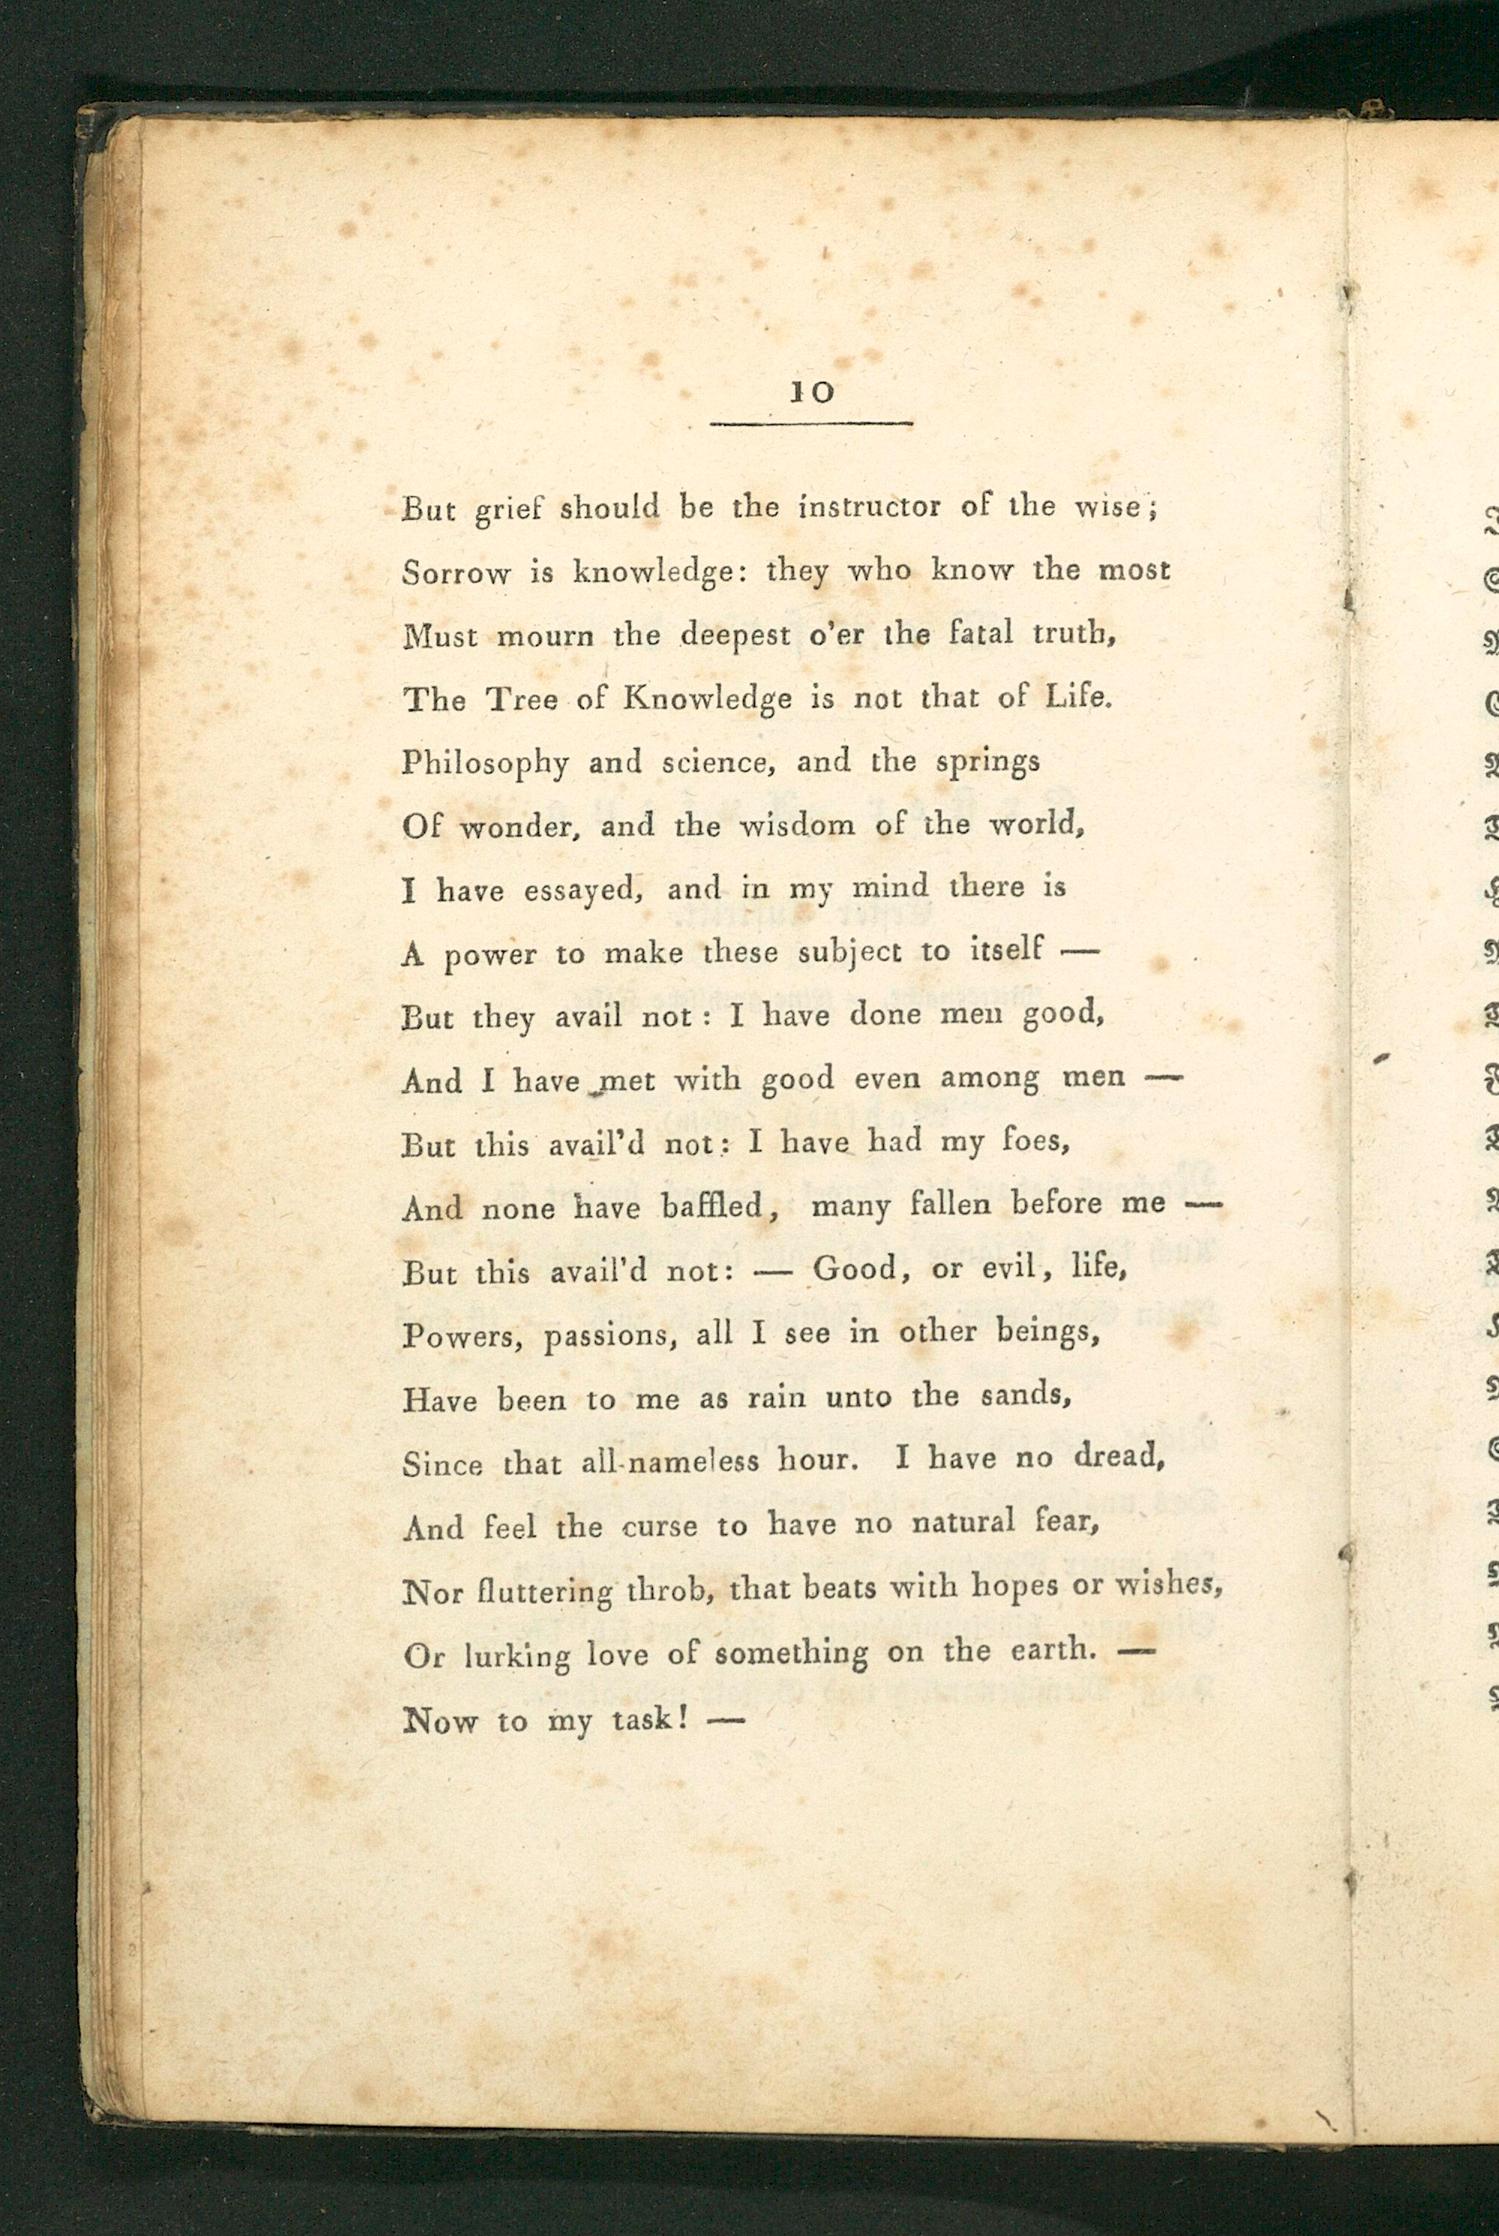 10
But grief should be the instructor of the wise;
Sorrow is knowledge: they who know the most
Must mourn the deepest o'er the fatal truth,
The Tree of Knowledge is not that of Life.
Philosophy and science, and the springs
Of wonder, and the wisdom of the world,
I have essayed, and in my mind there is
A power to make these subject to itself —
But they avail not: I have done men good,
And I have met with good even among men —
But this avail'd not: I have had my foes,
And none have baffled, many fallen before me —
But this avail'd not: — Good, or evil, life,
Powers, passions, all I see in other beings,
Have been to me as rain unto the sands,
Since that all-nameless hour. I have no dread,
And feel the curse to have no natural fear,
Nor fluttering throb, that beats with hopes or wishes,
Or lurking love of something on the earth. —
Now to my task! —